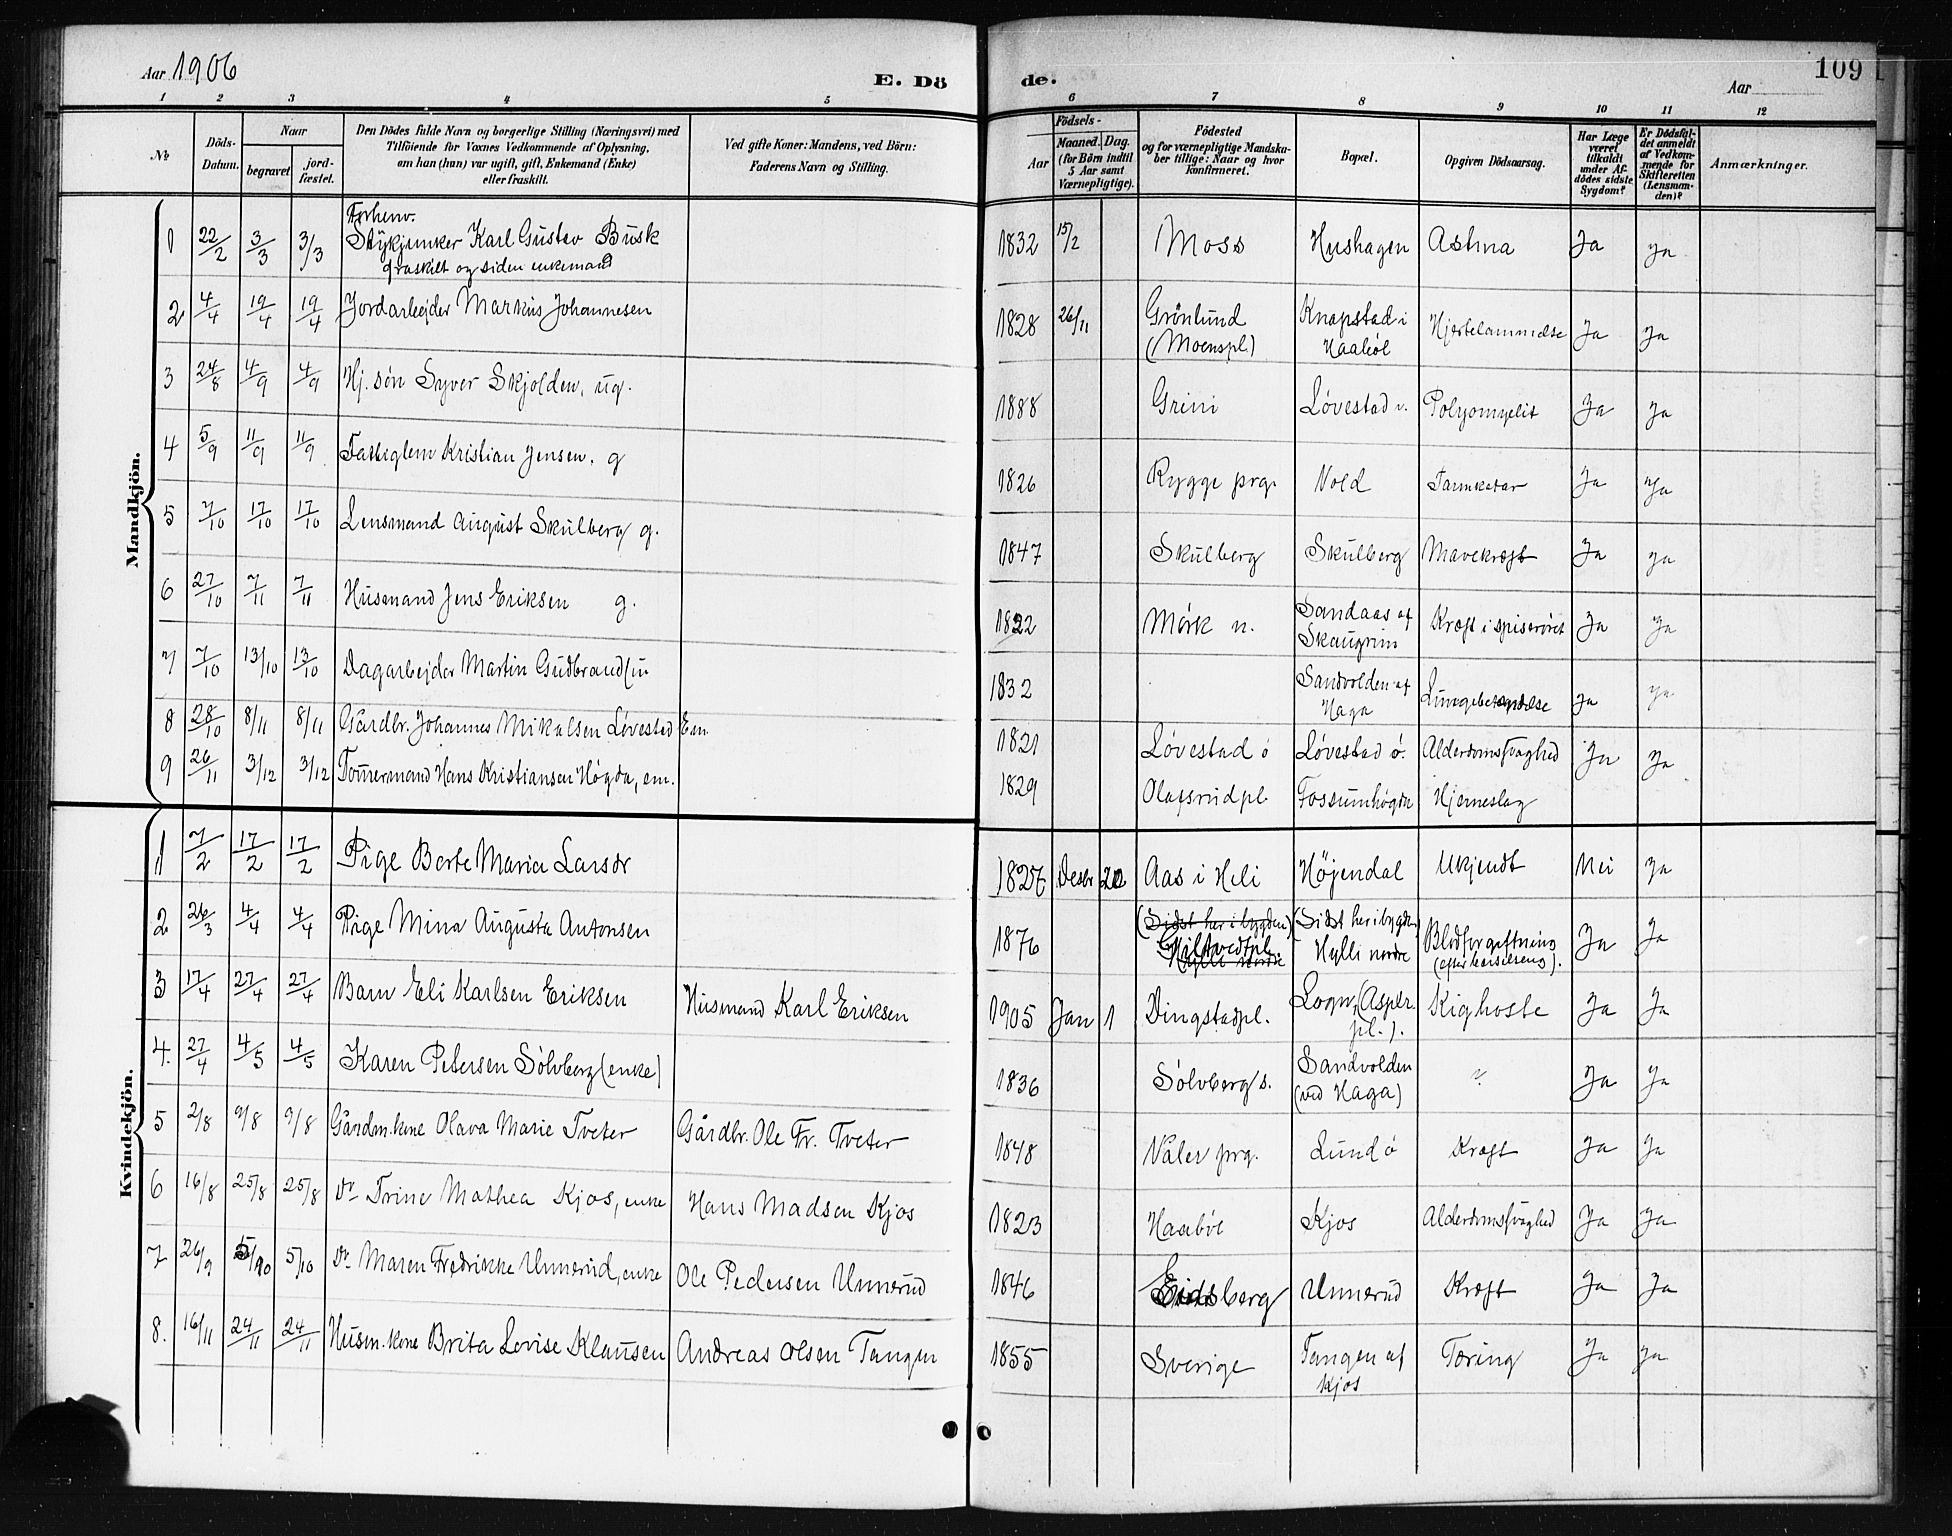 Aar 1906
E. Dö
de.
Aar
109
1 2 3 4 5 6 7 8 9 10 11 12
№
Döds-
Datum.
Naar
begravet
jord-
fæstet.
Den Dödes fulde Navn og borgerlige Stilling (Næringsvei) med
Tilföiende for Voxnes Vedkommende af Oplysning,
om han (hun) var ugift, gift, Enkemand (Enke)
eller fraskilt.
Ved gifte Koner: Mandens, ved Börn:
Faderens Navn og Stilling.
Födsels-
Aar
Maaned. Dag.
(for Börn indtil
5 Aar samt
Værnepligtige).
Födested
og for værnepligtige Mandska-
ber tillige: Naar og hvor
konfirmeret.
Bopæl.
Opgiven Dödsaarsag.
Har Læge
været
tilkaldt
under Af-
dödes sidste
Sygdom?
Er Dödsfal-
det anmeldt
af Vedkom-
mende for
Skifteretten
(Lensman-
den)?
Anmærkninger.
Mandkjön.
Forhenv.
1 22/2 3/3 3/3 Stykjunker Karl Gustav Busk 1832 15/2 Moss Hushagen Asthma Ja Ja
fraskilt og siden enkemand
2 4/4 19/4 19/4 Jordarbejder Markus Johannesen 1828 26/11 Grönlund Knapstad i Hjertelammelse Ja Ja
(Moenspl.) Haabøl
3 24/8 4/9 4/9 Hj. søn Syver Skjolden, ug. 1888 Grini Løvestad v. Polyomyelit Ja Ja
4 5/9 11/9 11/9 Kristian Jensen. g 1826 Rygge prg. Vold Tarmkatar Ja Ja
5 7/10 17/10 17/10 Lensmand August Skulberg g. 1847 Skulberg Skulberg Mavekræft Ja Ja
6 27/10 7/11 7/11 Husmand Jens Eriksen g. 1822 Mörk n. Sandaas af Kræft i spiserøret Ja Ja
Skaugrim
7 7/10 13/10 13/10 Dagarbejder Martin Gudbrandsen 1832 Sandvolden af Lungebetændelse Ja Ja
Haga
8 28/10 8/11 8/11 Gårdbr. Johannes Mikalsen Løvestad Em. 1821 Løvestad ö Løvestad ö. Alderdomssvaghed Ja Ja
9 26/11 3/12 3/12 Tømmermand Hans Kristiansen Høgda, em. 1829 Olafsrudpl. Fossumhögda Hjerneslag
Kvindekjön.
1 7/2 17/2 17/2 Pige Berte Maria Larsdr 1827 Desbr Aas i Heli Höjendal Ukjendt Nei Ja
2 26/3 4/4 4/4 Pige Mina Augusta Antonsen 1876 (Sidst her i bygden) (Sidst her i bygden) Blodforgiftning Ja Ja
Giltvedtpl. Hylli nordre (efter barselseng).
Hylli nordre
3 17/4 27/4 27/4 Barn Eli Karlsen Eriksen Husmand Karl Eriksen 1905 Jan 1 Dingstadpl. Logn, (Aspler Kighoste Ja Ja
pl.).
4. 27/4 4/5 4/5 Karen Petersen Sölvberg (enke) 1836 Sölvberg s. Sandvolden ? Ja Ja
(ved Haga)
5 2/8 9/8 9/8 Gårdm. kone Olava Marie Tveter Gårdbr. Ole Fr. Tveter 1848 Våler prg. Lund ö Kræft Ja Ja
6 16/8 25/8 25/8 Do Trine Mathea Kjos, enke Hans Madsen Kjos 1823 Haabøl Kjos Alderdomssvaghed Ja Ja
7 26/9 5/10 5/10 Do Maren Fredrikke Unnerud, enke Ole Pedersen Unnerud 1846 Eidsberg Unnerud Kræft Ja Ja
8. 16/11 24/11 24/11 Husm. kone Brita Lovise Klausen Andreas Olsen Tangen 1855 Sverige Tangen af Tæring Ja Ja
Kjos